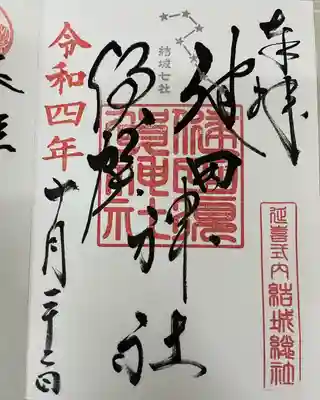 奉拝
延喜式内 結城總社
結城七社
健田
須賀
神社
健田須賀神社
令和四年
十月二十二日